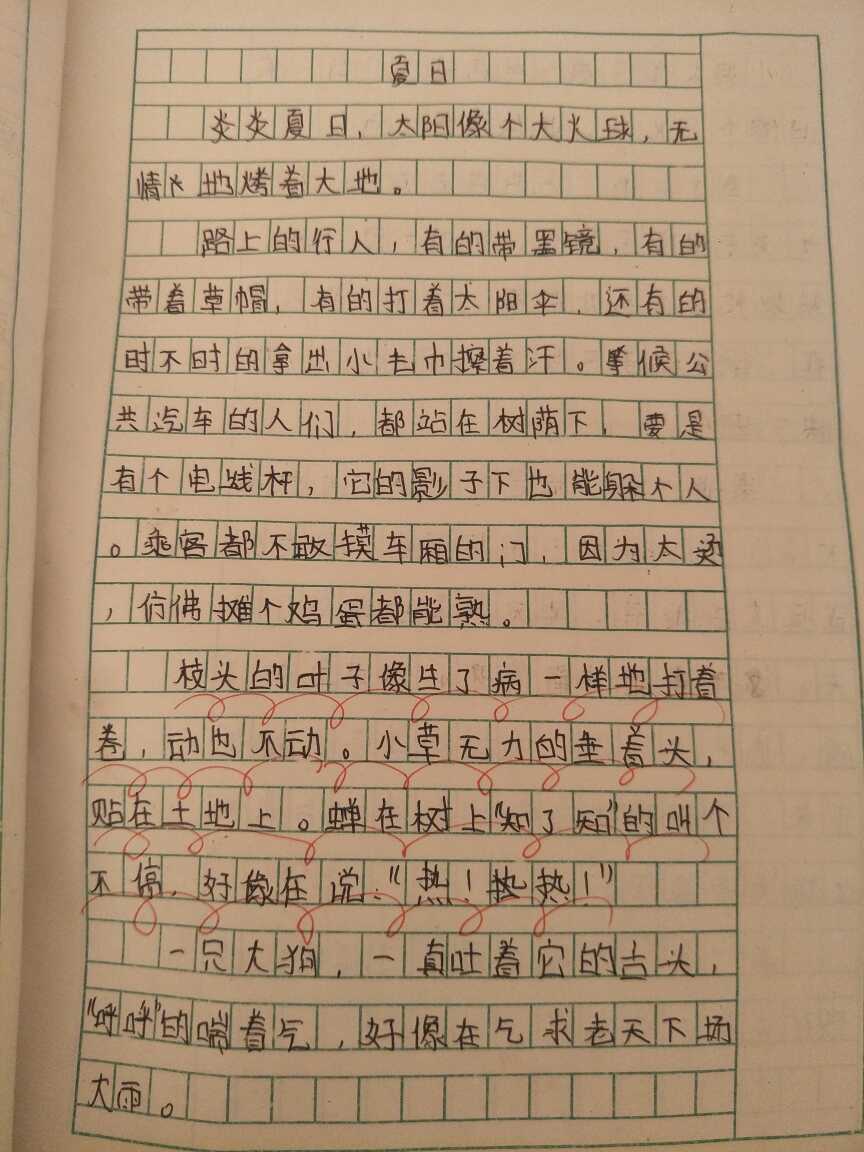 夏日
炎炎夏日，太阳像个大火球，无
情火地烤着大地。
路上的行人，有的带墨镜，有的
带着草帽，有的打着太阳伞，还有的
时不时的拿出小毛巾擦着汗。等候公
共汽车的人们，都站在树荫下，要是
有个电线杆，它的影子下也能躲个人
。乘客都不敢摸车厢的门，因为太烫
，仿佛摊个鸡蛋都能熟。
枝头的叶子像生了病一样地打着
卷，动也不动。小草无力的垂着头，
贴在土地上。蝉在树上“知了知”的叫个
不停，好像在说：“热！热热！”
一只大狗，一直吐着它的舌头，
“呼呼”的喘着气，好像在乞求老天下场
大雨。